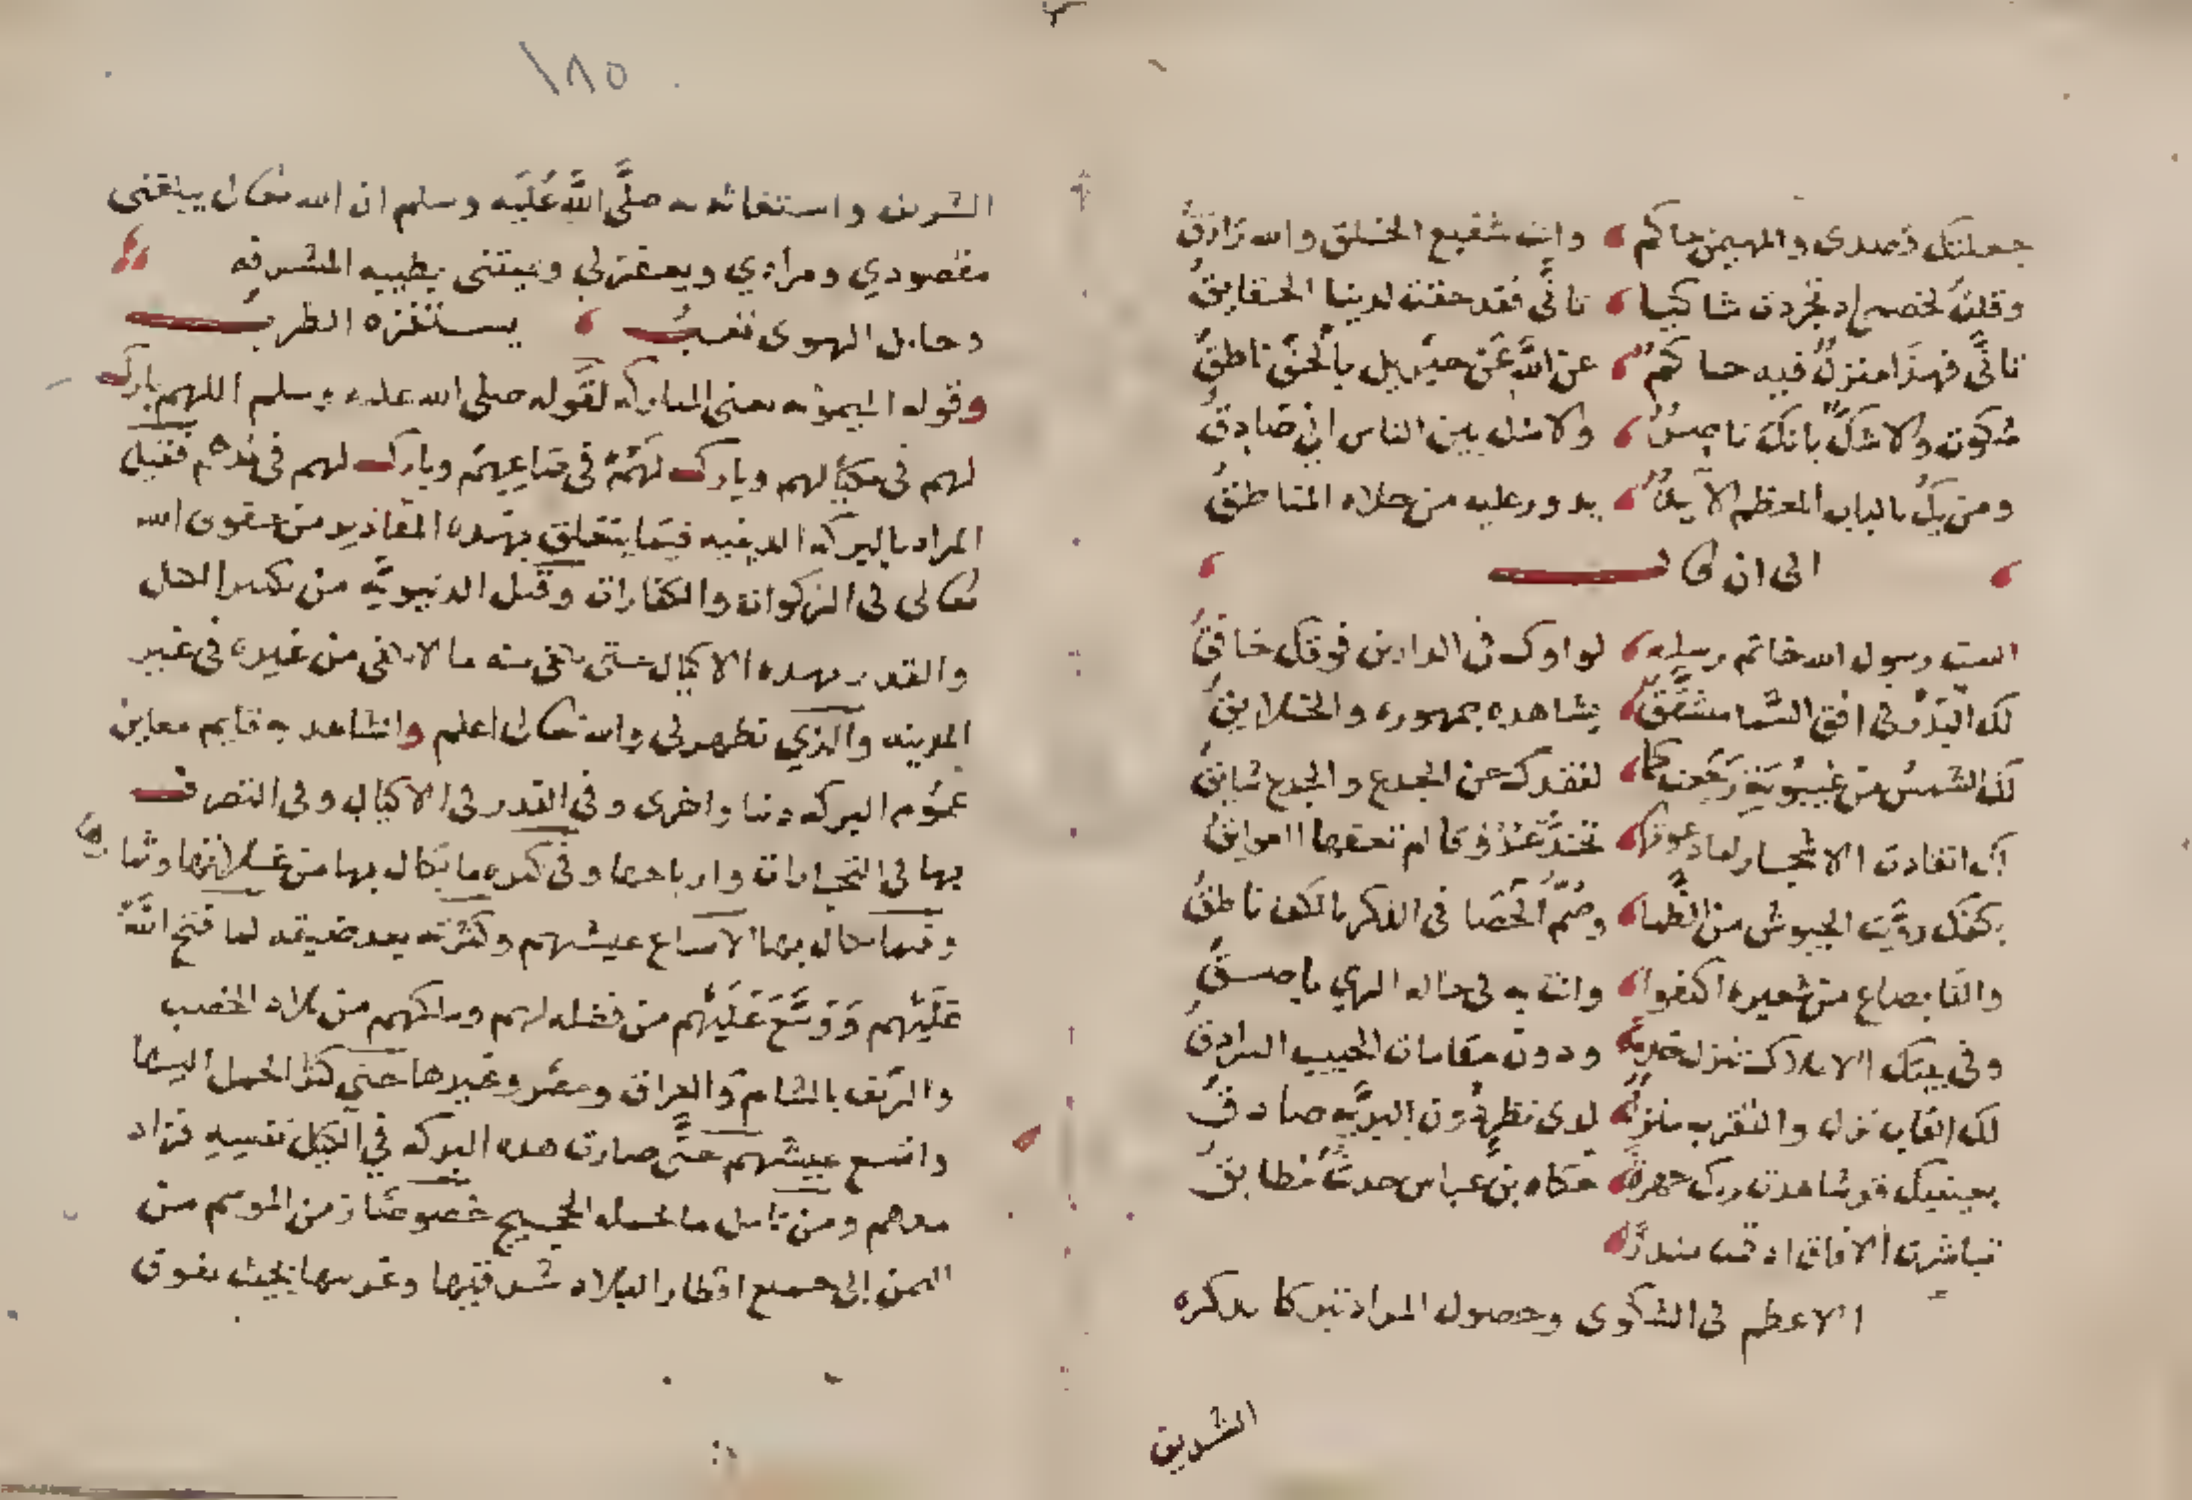 جعلتك قصدى والمهيمن حاكم وانت شفيع الخلق والله رازق
وقلت لخصمى اد تجردت شاكيا تانى فقد حقت لدينا الحقايق
تانى فهذا منزل فيه حاكم عن الله عن جبريل بالحق ناطق
شكوت ولا شك بانك ناصر ولا مثل بين الناس انى صادق
ومن يك بالباب المعظم لايذ يدور عليه من حلاه المناطق
الى ان قال
الست رسول الله خاتم رسله لواوك فى الدارين فوقك خافق
لك البدر فى افق السما منشق يشاهده جمهوره والخلايق
لك الشمس من غيبوبة رجعت كما لفقدك حن الجدع والجدع
لك انقادت الاشجار لما دعوتها تخد
بكفك رويت الجيوش من الظما وصم الحصا فى الذكر بالكف ناطق
والفا بصاع من شعيره اكتفوا وانت به فى حاله الهي
وفى بيتك الاملاك تنزل خدمة ودون مقامات الحبيب السرادق
لك القاب نزل والتقرب منزل لدى نظر دون البريه صادق
بعينيك قد شاهدت ربك جهرة حكاه بن عباس حديث مطابق
تباشرت الافاق اد
الاعظم فى الشكوى وحصول المراد تبركا بدكره
الشريف
١٨٥
الشريف واستغاثه به صلى الله عليه وسلم ان الله تعالى يبلغنى
مقصودي ومرادي ويغفر لي ويميتنى بطيبه المشرفه
وحامل الهوى تعب يستفزه الطرب
وقوله الميمونه بمعنى المباركه لقوله صلى الله عليه وسلم اللهم بارك
لهم فى مكيالهم وبارك لهم فى صاعهم وبارك لهم فى مدهم فقيل
المراد بالبركه الدينيه فيما يتعلق بهده المقادير من حقوق الله
تعالى فى الزكوات والكفارات وقيل الدنيويه من تكثير الكيل
والقدر بهده الاكيال حتى يكفى منه ما لا يكفى من غيره فى غير
المدينه والذي تظهر لى والله تعالى اعلم والشاهد به قايم معاين
عموم البركه دنيا واخرى وفى القدر فى الاكيال وفى التصرف
بها فى التجارات وارباحها وفى كثره ما يكال بها من غلاتها وثمارها
وفيما يكال بها لاتساع عيشهم وكثرته بعد ضيقه لما فتح الله
عليهم ووسع عليهم من فضله لهم وملكهم من بلاد الخصب
والريف بالشام والعراق ومصر وغيرها حتى كثر الحمل اليها
واتسع عيشهم حتى صارت هده البركه في الكيل نفسه فزاد
مدهم ومن تامل ما تحمله الحجيج خصوصا زمن الموسم من
اليمن إلى جميع اقطار البلاد شرقيها وغربيها بحيث يفوق